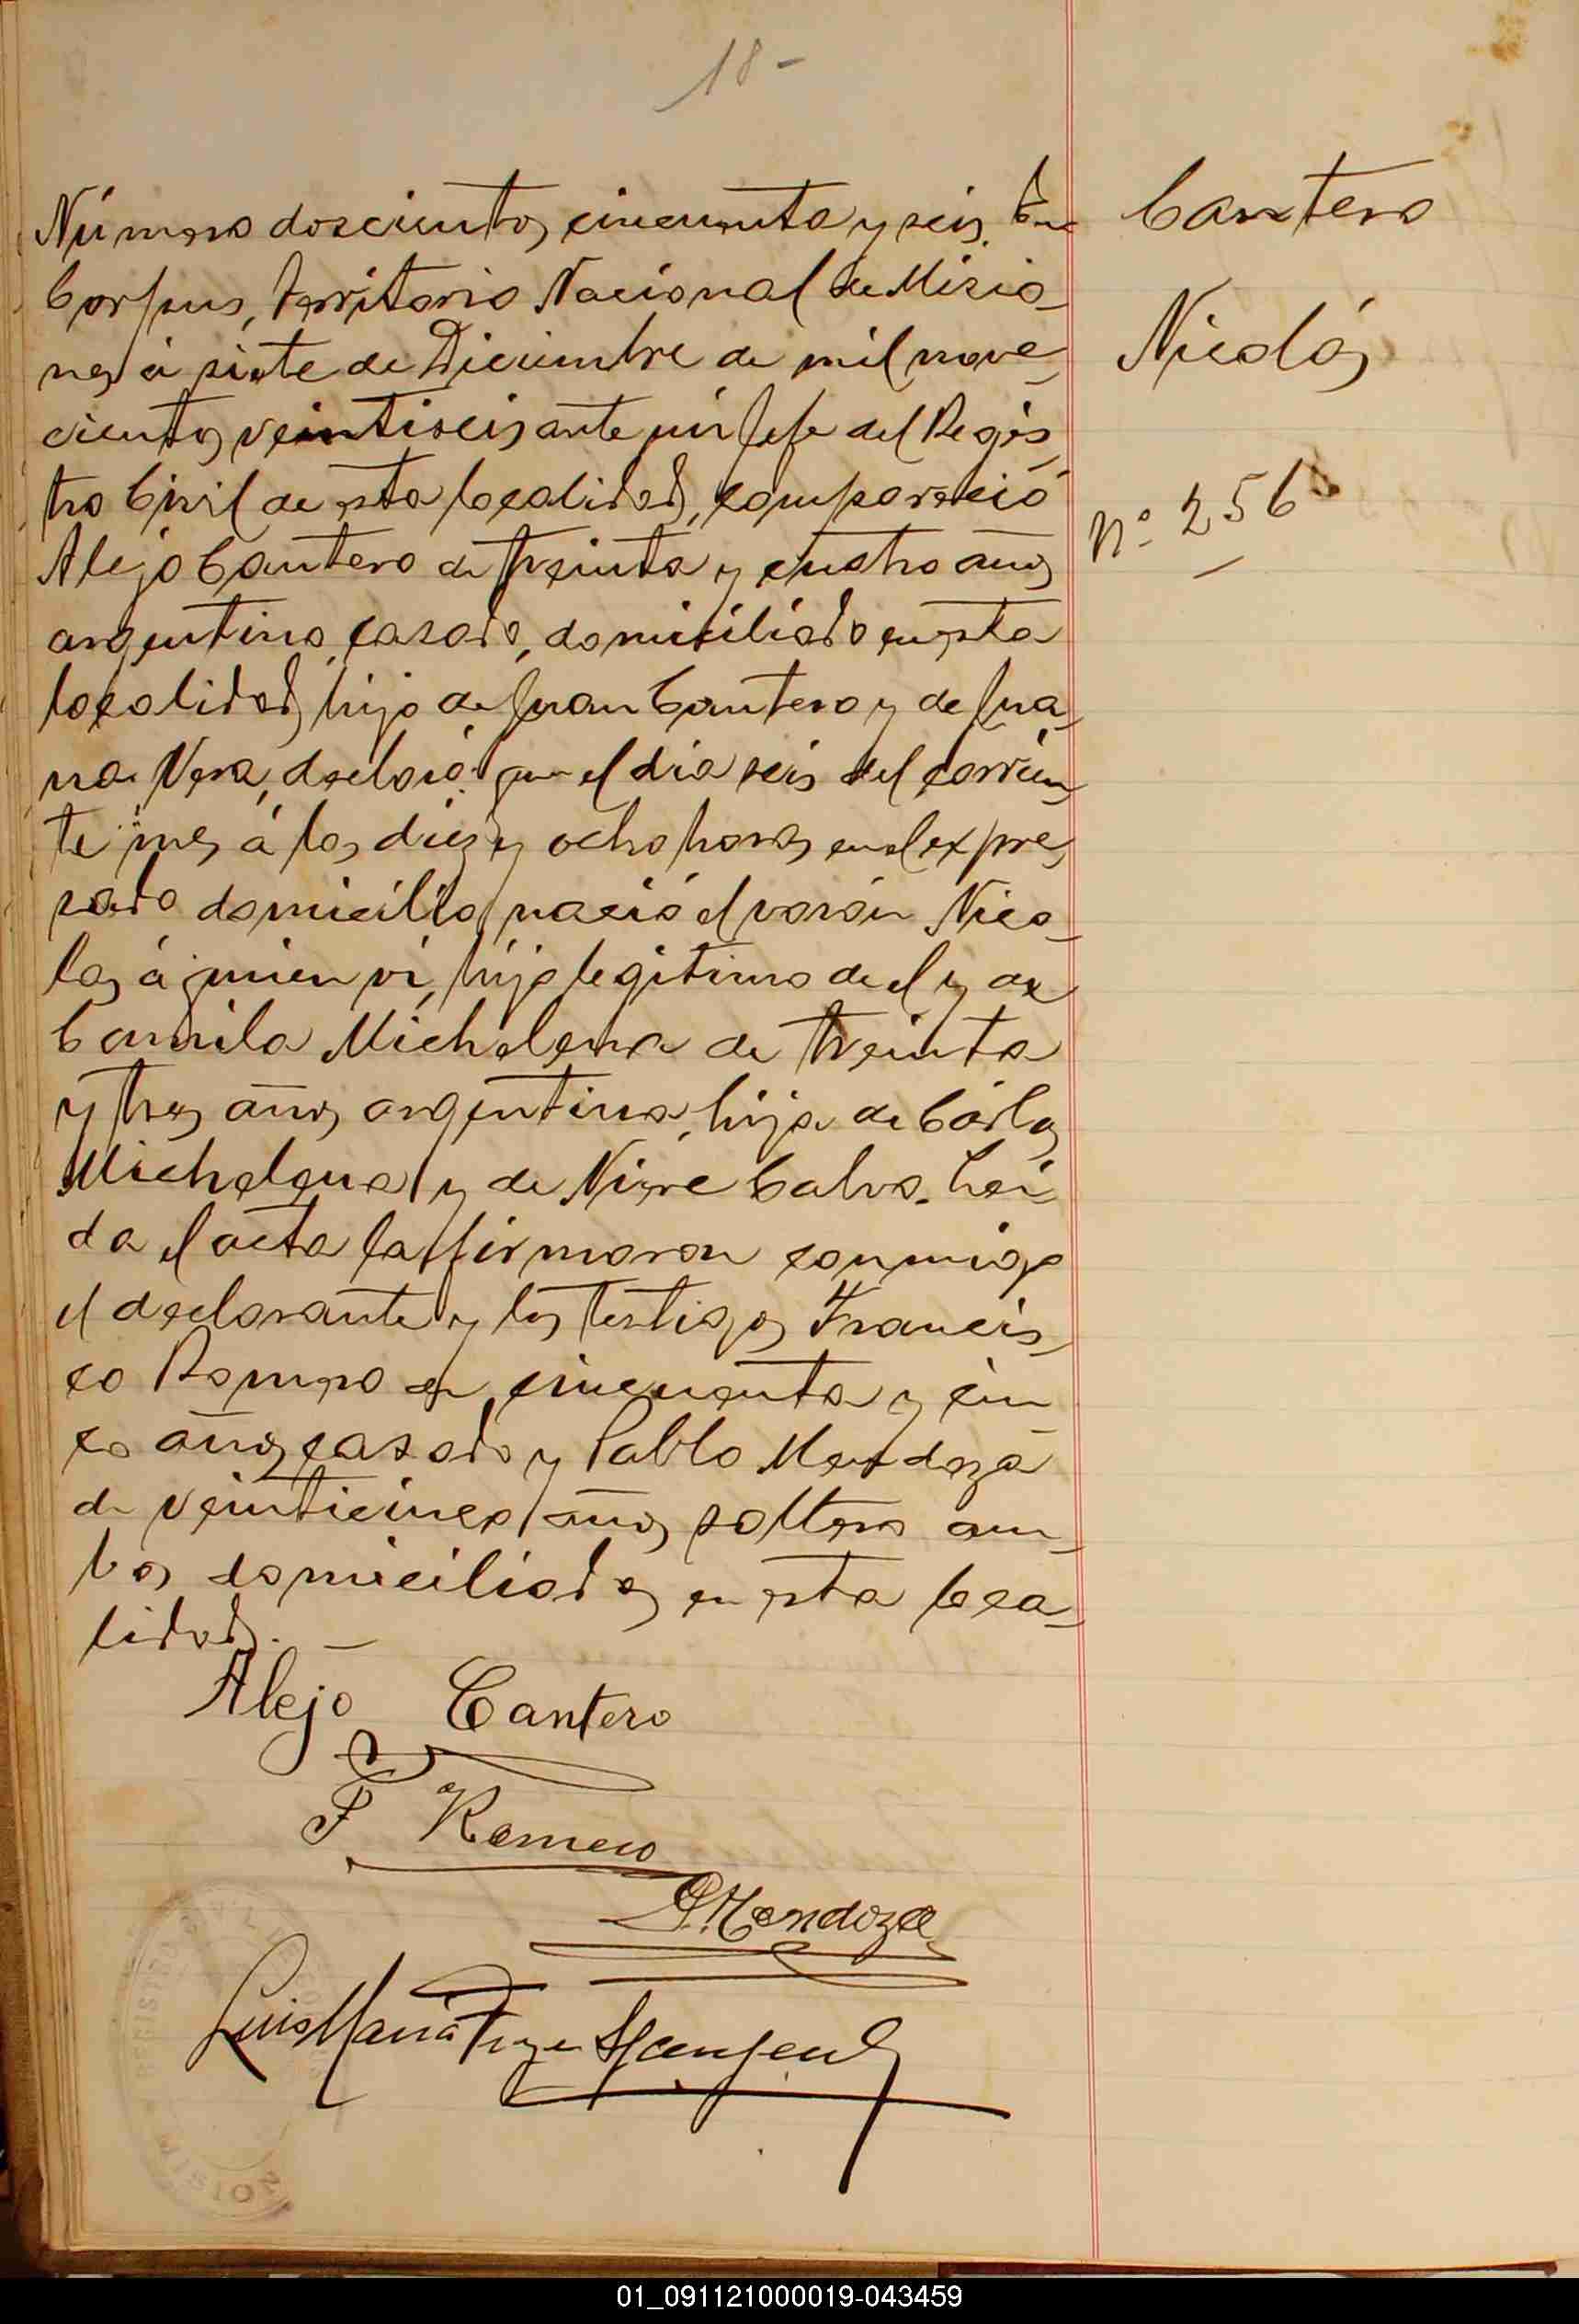 18-
Cantero
Nicolás
Nº 256
Número doscientos cincuenta y seis. En
Corpus, Territorio Nacional de Misio-
nes á siete de Diciembre de mil nove-
cientos veintiseis ante mí Jefe del Regis-
tro Civil de esta localidad, compareció
Alejo Cantero de treinta y cuatro años
argentino, casado, domiciliado en esta
localidad, hijo de Juan Cantero y de Jua-
na Vera, declaró: que el día seis del corrien-
te mes á las diez y ocho horas en el expre-
sado domicilio nació el varón Nico-
las á quien ví, hijo legítimo de el y de
Camila Michelena de treinta
y tres años argentina, hija de Cárlos
Michelena y de Calvo. Leí-
da el acta la firmaron conmigo
el declarante y los testigos Francis-
co Romero de cincuenta y cin-
co años casado y Pablo Mendoza
de veinticinco años soltero am-
bos domiciliados en esta loca-
lidad.-
Alejo Cantero
F Romero
P. Mendoza
Luis María
REGISTRO CIVIL
MISIONES
01_091121000019-043459